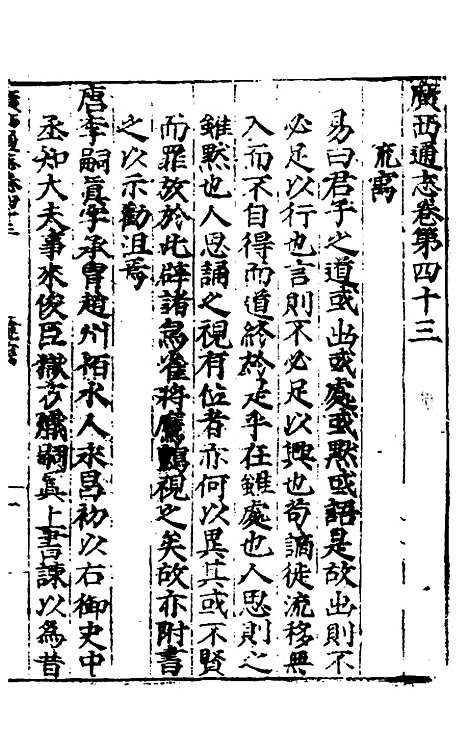 廣西通志卷第四十三
㐬寓
易曰君子之道或出或處或默或語是故出則不
必足以行也言則不必足以興也苟謫徙流移無
入而不自得而道終於是乎在雖處也人思則之
雖默也人思誦之視有位者亦何以異其或不賢
而罪放於此辟諸鳥雀將鷹鸇視之矣故亦附書
之以示勸沮焉
唐李嗣真字承胄趙州栢水人永昌初以右御史中
丞知大夫事來俊臣獄方熾嗣真上書諫以為昔